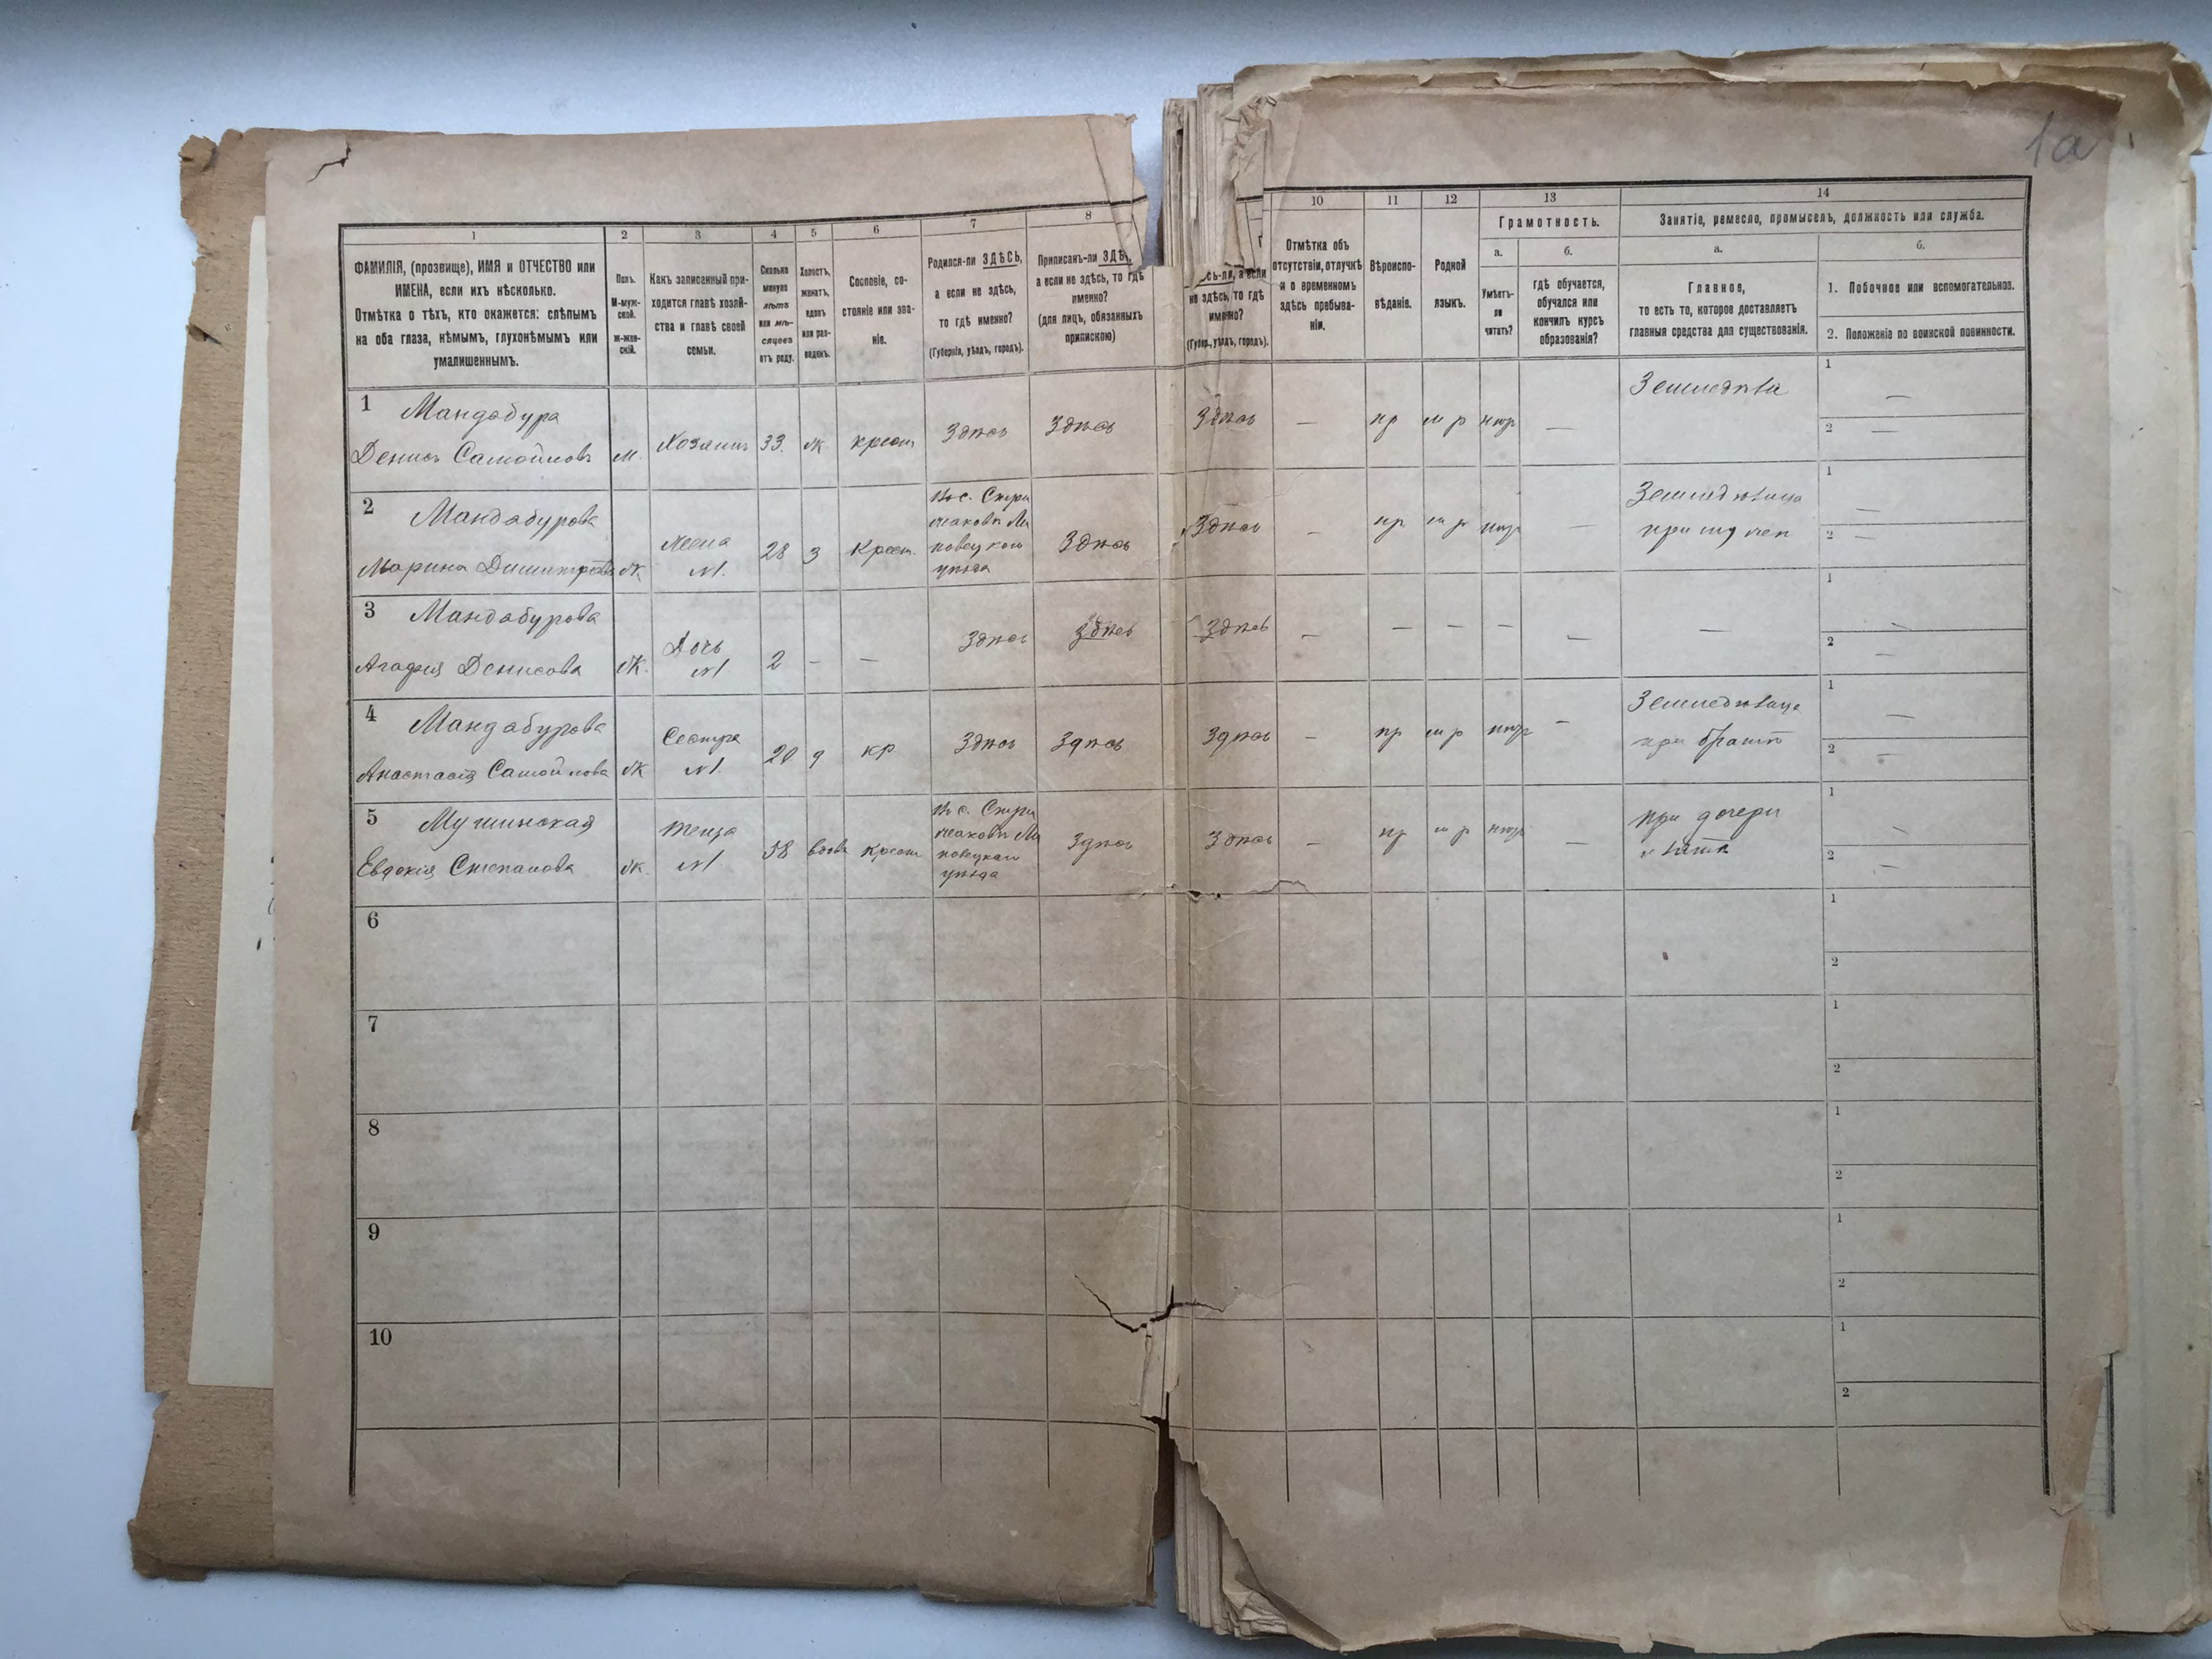 1а
1 2 3 4 5 6 7 8 10 11 12 13 14
ФАМИЛІЯ, (прозвище), ИМЯ и ОТЧЕСТВО или
ИМЕНА, если ихъ нѣсколько.
Отмѣтка о тѣхъ, кто окажется: слѣпымъ
на оба глаза, нѣмымъ, глухонѣмымъ или
умалишеннымъ.
Полъ.
М-муж-
ской.
Ж-жен-
скій.
Какъ записанный при-
ходится главѣ хозяй-
ства и главѣ своей
семьи.
Сколько
минуло
лѣтъ
или мѣ-
сяцевъ
отъ роду.
Холостъ,
женатъ,
вдовъ
или раз-
веденъ.
Сословіе, со-
стояніе или зва-
ніе.
Родился-ли ЗДѢСЬ,
а если не здѣсь,
то гдѣ именно?
(Губернія, уѣздъ, городъ).
Приписанъ-ли
а если не здѣсь, то гдѣ
именно?
(для лицъ, обязанныхъ
припискою)
а если
не здѣсь, то гдѣ
именно?
(Губер., уѣздъ, городъ).
Отмѣтка объ
отсутствіи, отлучкѣ
и о временномъ
здѣсь пребыва-
ніи.
Вѣроиспо-
вѣданіе.
Родной
языкъ.
Грамотность.
а.
Умѣетъ-
ли
читать?
б.
гдѣ обучается,
обучался или
кончилъ курсъ
образованія?
Занятіе, ремесло, промыселъ, должность или служба.
а.
Главное,
то есть то, которое доставляетъ
главныя средства для существованія.
б.
1. Побочное или вспомогательное.
2. Положеніе по воинской повинности.
1 Мандабура
Денисъ Самойловъ м. Хозяинъ 33. ж крест Здѣсь Здѣсь Здѣсь — пр м р — 1 —
2 —
2 Мандабурова
Марина жена 28 з Крест. Здѣсь Здѣсь — пр м р — 1 —
ж М. уѣзда 2 —
3 Мандабурова
Агафія Денисова ж. Дочь 2 — — Здѣсь Здѣсь Здѣсь — — — — — — 1 —
М 2 —
4 Мандабурова
Анастасія Самойлова ж Сестра 20 д кр Здѣсь Здѣсь Здѣсь — пр м р — при братѣ 1 —
М. 2 —
5
Евдокія Степанова ж. теща 58 вдова крест Здѣсь Здѣсь — пр м р — при дочери 1 —
М уѣзда 2 —
6 1
2
7 1
2
8 1
2
9 1
2
10 1
2